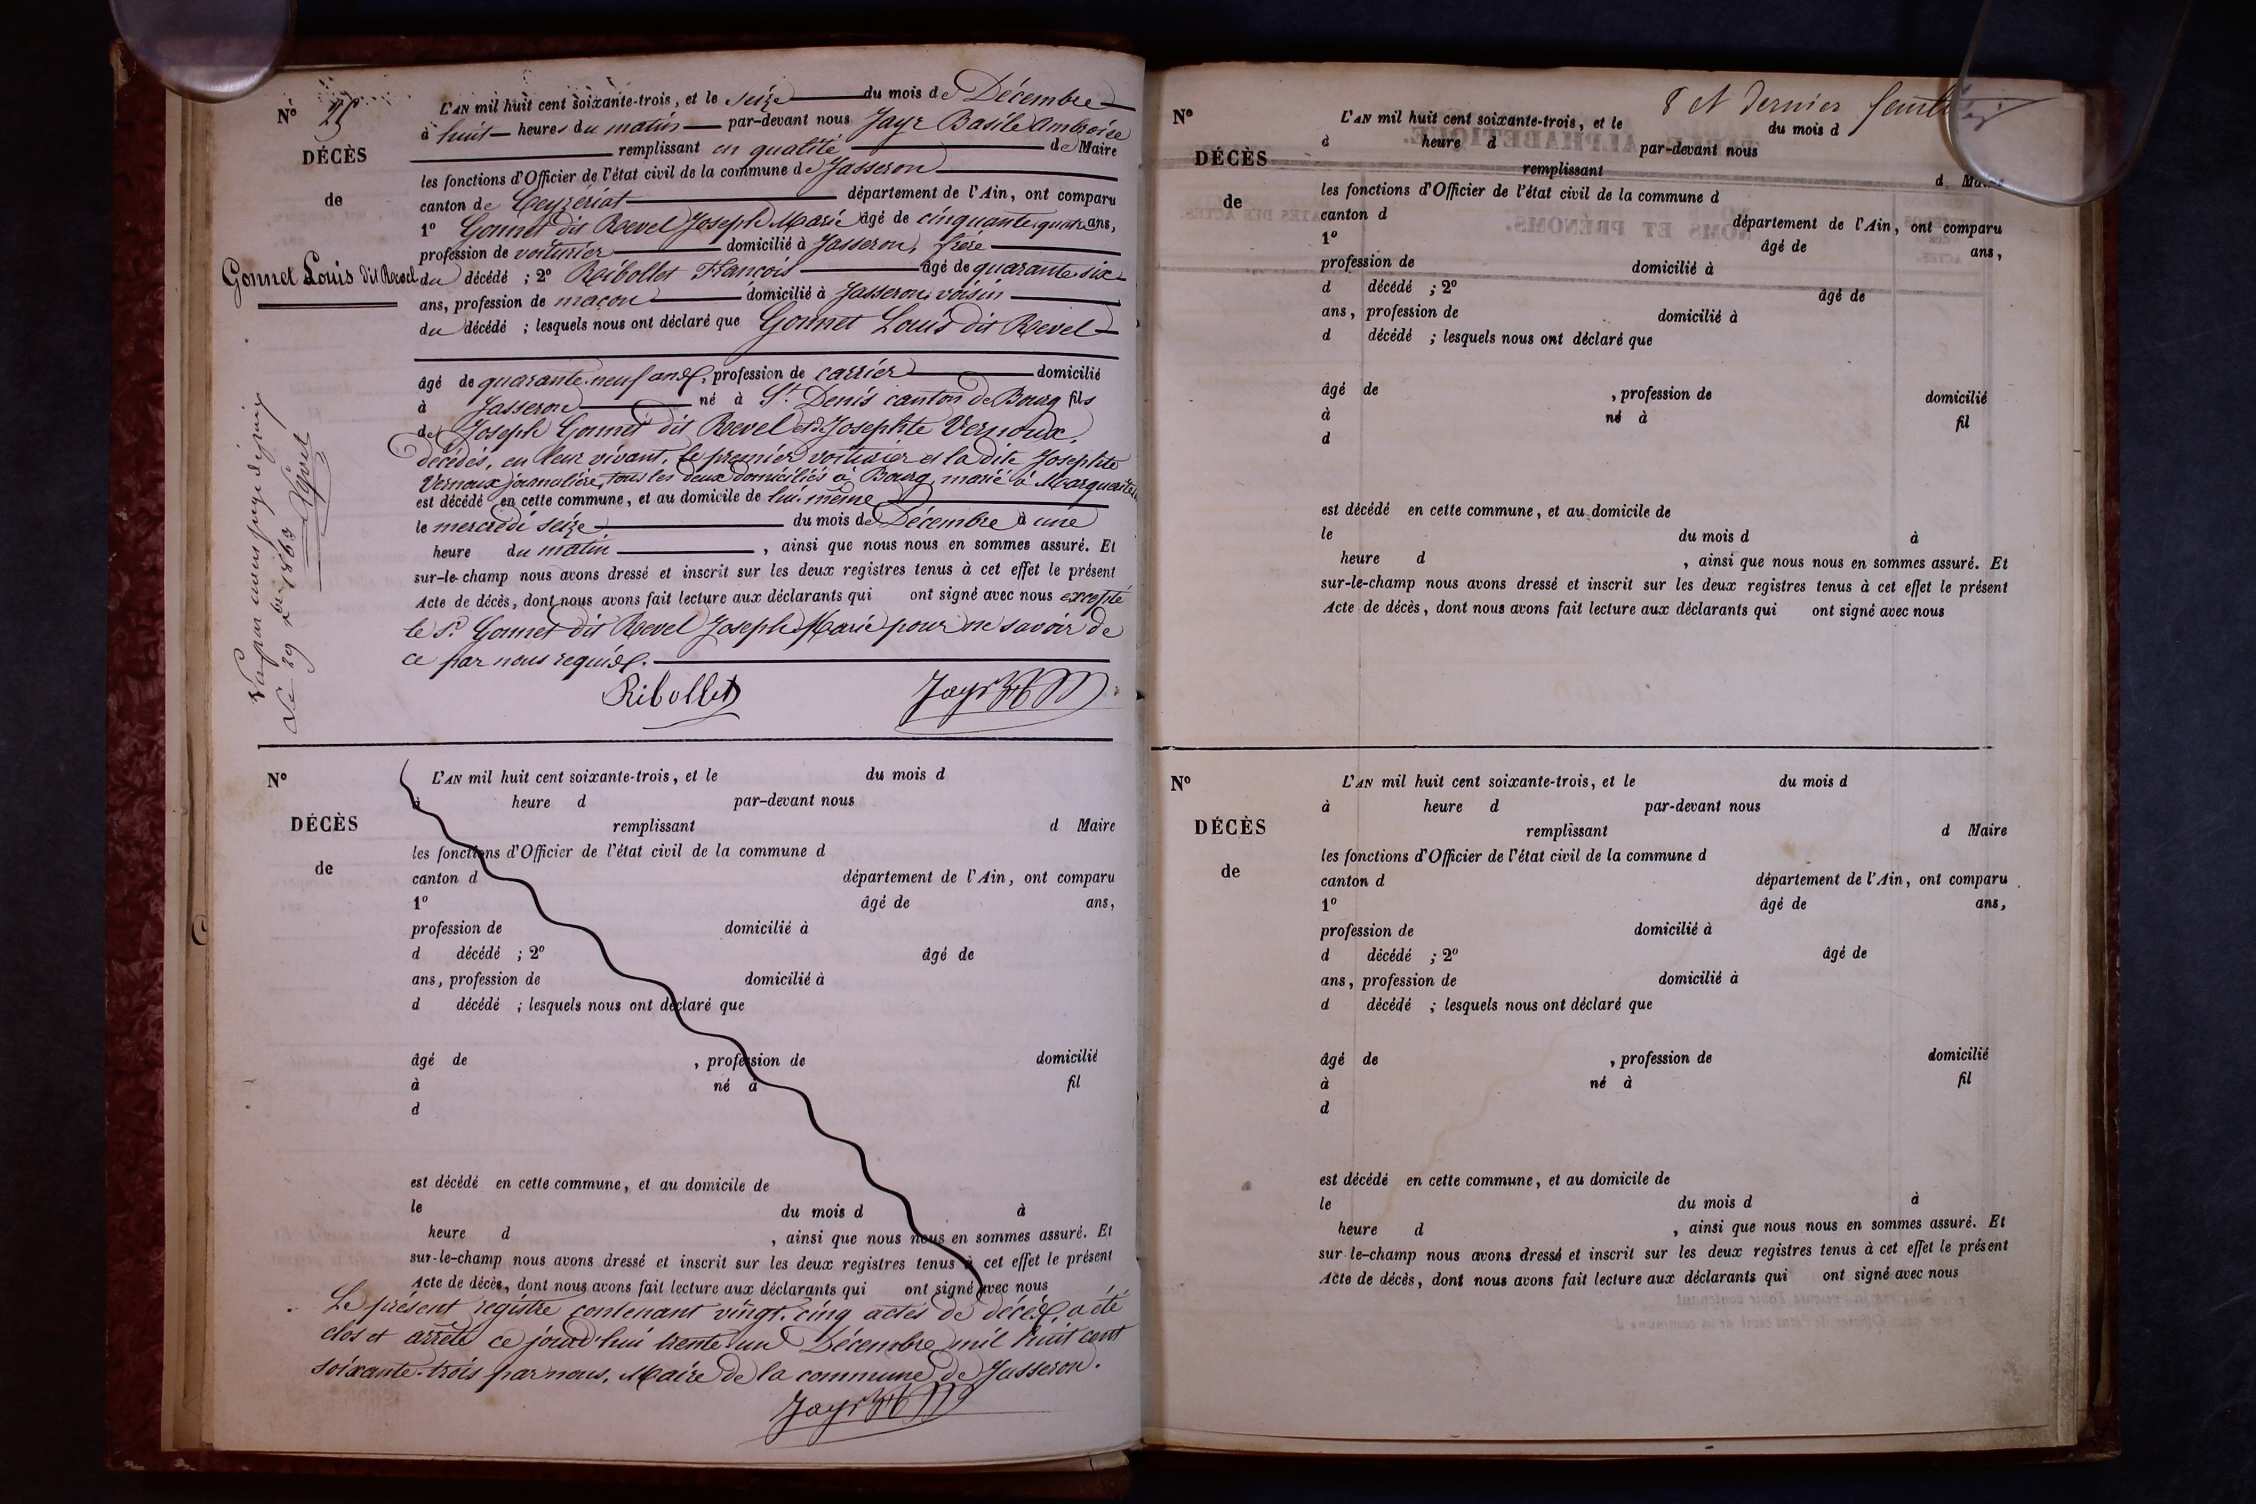 N° 25
DÉCÈS
de
Gonnet Louis dit Revel
L'AN mil huit cent soixante-trois, et le seize du mois de Décembre
à huit heures du matin par-devant nous Jayr Basile Ambroise
remplissant en qualité de Maire
les fonctions d'Officier de l'état civil de la commune de Jasseron
canton de Ceyzériat département de l'Ain, ont comparu
1° Gonnet dit Revel Joseph Marie âgé de cinquante quatre ans,
profession de voiturier domicilié à Jasseron, frère
du décédé ; 2° Reibollet François âgé de quarante six
ans, profession de maçon domicilié à Jasseron, voisin
du décédé ; lesquels nous ont déclaré que Gonnet Louis dit Revel
âgé de quarante-neuf ans, profession de carrier domicilié
à Jasseron né à St. Denis canton de Bourg fils
de Joseph Gonnet dit Revel et de Josephte Vernoux,
décédés, en leur vivant, le premier voiturier et la dite Josephte
Vernoux journalière, tous les deux domiciliés à Bourg, marié à Marguerite
est décédé en cette commune, et au domicile de lui-même
le mercredi seize du mois de Décembre à une
heure du matin , ainsi que nous nous en sommes assuré. Et
sur-le-champ nous avons dressé et inscrit sur les deux registres tenus à cet effet le présent
Acte de décès, dont nous avons fait lecture aux déclarants qui ont signé avec nous excepté
le Sr. Gonnet dit Revel Joseph Marie pour ne savoir de
ce par nous requis.
Ribollet Jayr
Vu par nous juge
Le 29 Xbre 1863
N°
DÉCÈS
de
L'AN mil huit cent soixante-trois, et le du mois d
à heure d par-devant nous
remplissant d Maire
les fonctions d'Officier de l'état civil de la commune d
canton d département de l'Ain, ont comparu
1° âgé de ans,
profession de domicilié à
d décédé ; 2° âgé de
ans, profession de domicilié à
d décédé ; lesquels nous ont déclaré que
âgé de , profession de domicilié
à né à fil
d
est décédé en cette commune, et au domicile de
le du mois d à
heure d , ainsi que nous nous en sommes assuré. Et
sur-le-champ nous avons dressé et inscrit sur les deux registres tenus à cet effet le présent
Acte de décès, dont nous avons fait lecture aux déclarants qui ont signé avec nous
Le présent registre contenant vingt-cinq actes de décès, a été
clos et arrêté ce jourd'hui trente un Décembre mil huit cent
soixante-trois par nous, Maire de la commune de Jasseron.
Jayr
8 et dernier feuillet
N°
DÉCÈS
de
L'AN mil huit cent soixante-trois, et le du mois d
à heure d par-devant nous
remplissant d Maire
les fonctions d'Officier de l'état civil de la commune d
canton d département de l'Ain, ont comparu
1° âgé de ans,
profession de domicilié à
d décédé ; 2° âgé de
ans, profession de domicilié à
d décédé ; lesquels nous ont déclaré que
âgé de , profession de domicilié
à né à fil
d
est décédé en cette commune, et au domicile de
le du mois d à
heure d , ainsi que nous nous en sommes assuré. Et
sur-le-champ nous avons dressé et inscrit sur les deux registres tenus à cet effet le présent
Acte de décès, dont nous avons fait lecture aux déclarants qui ont signé avec nous
N°
DÉCÈS
de
L'AN mil huit cent soixante-trois, et le du mois d
à heure d par-devant nous
remplissant d Maire
les fonctions d'Officier de l'état civil de la commune d
canton d département de l'Ain, ont comparu
1° âgé de ans,
profession de domicilié à
d décédé ; 2° âgé de
ans, profession de domicilié à
d décédé ; lesquels nous ont déclaré que
âgé de , profession de domicilié
à né à fil
d
est décédé en cette commune, et au domicile de
le du mois d à
heure d , ainsi que nous nous en sommes assuré. Et
sur-le-champ nous avons dressé et inscrit sur les deux registres tenus à cet effet le présent
Acte de décès, dont nous avons fait lecture aux déclarants qui ont signé avec nous